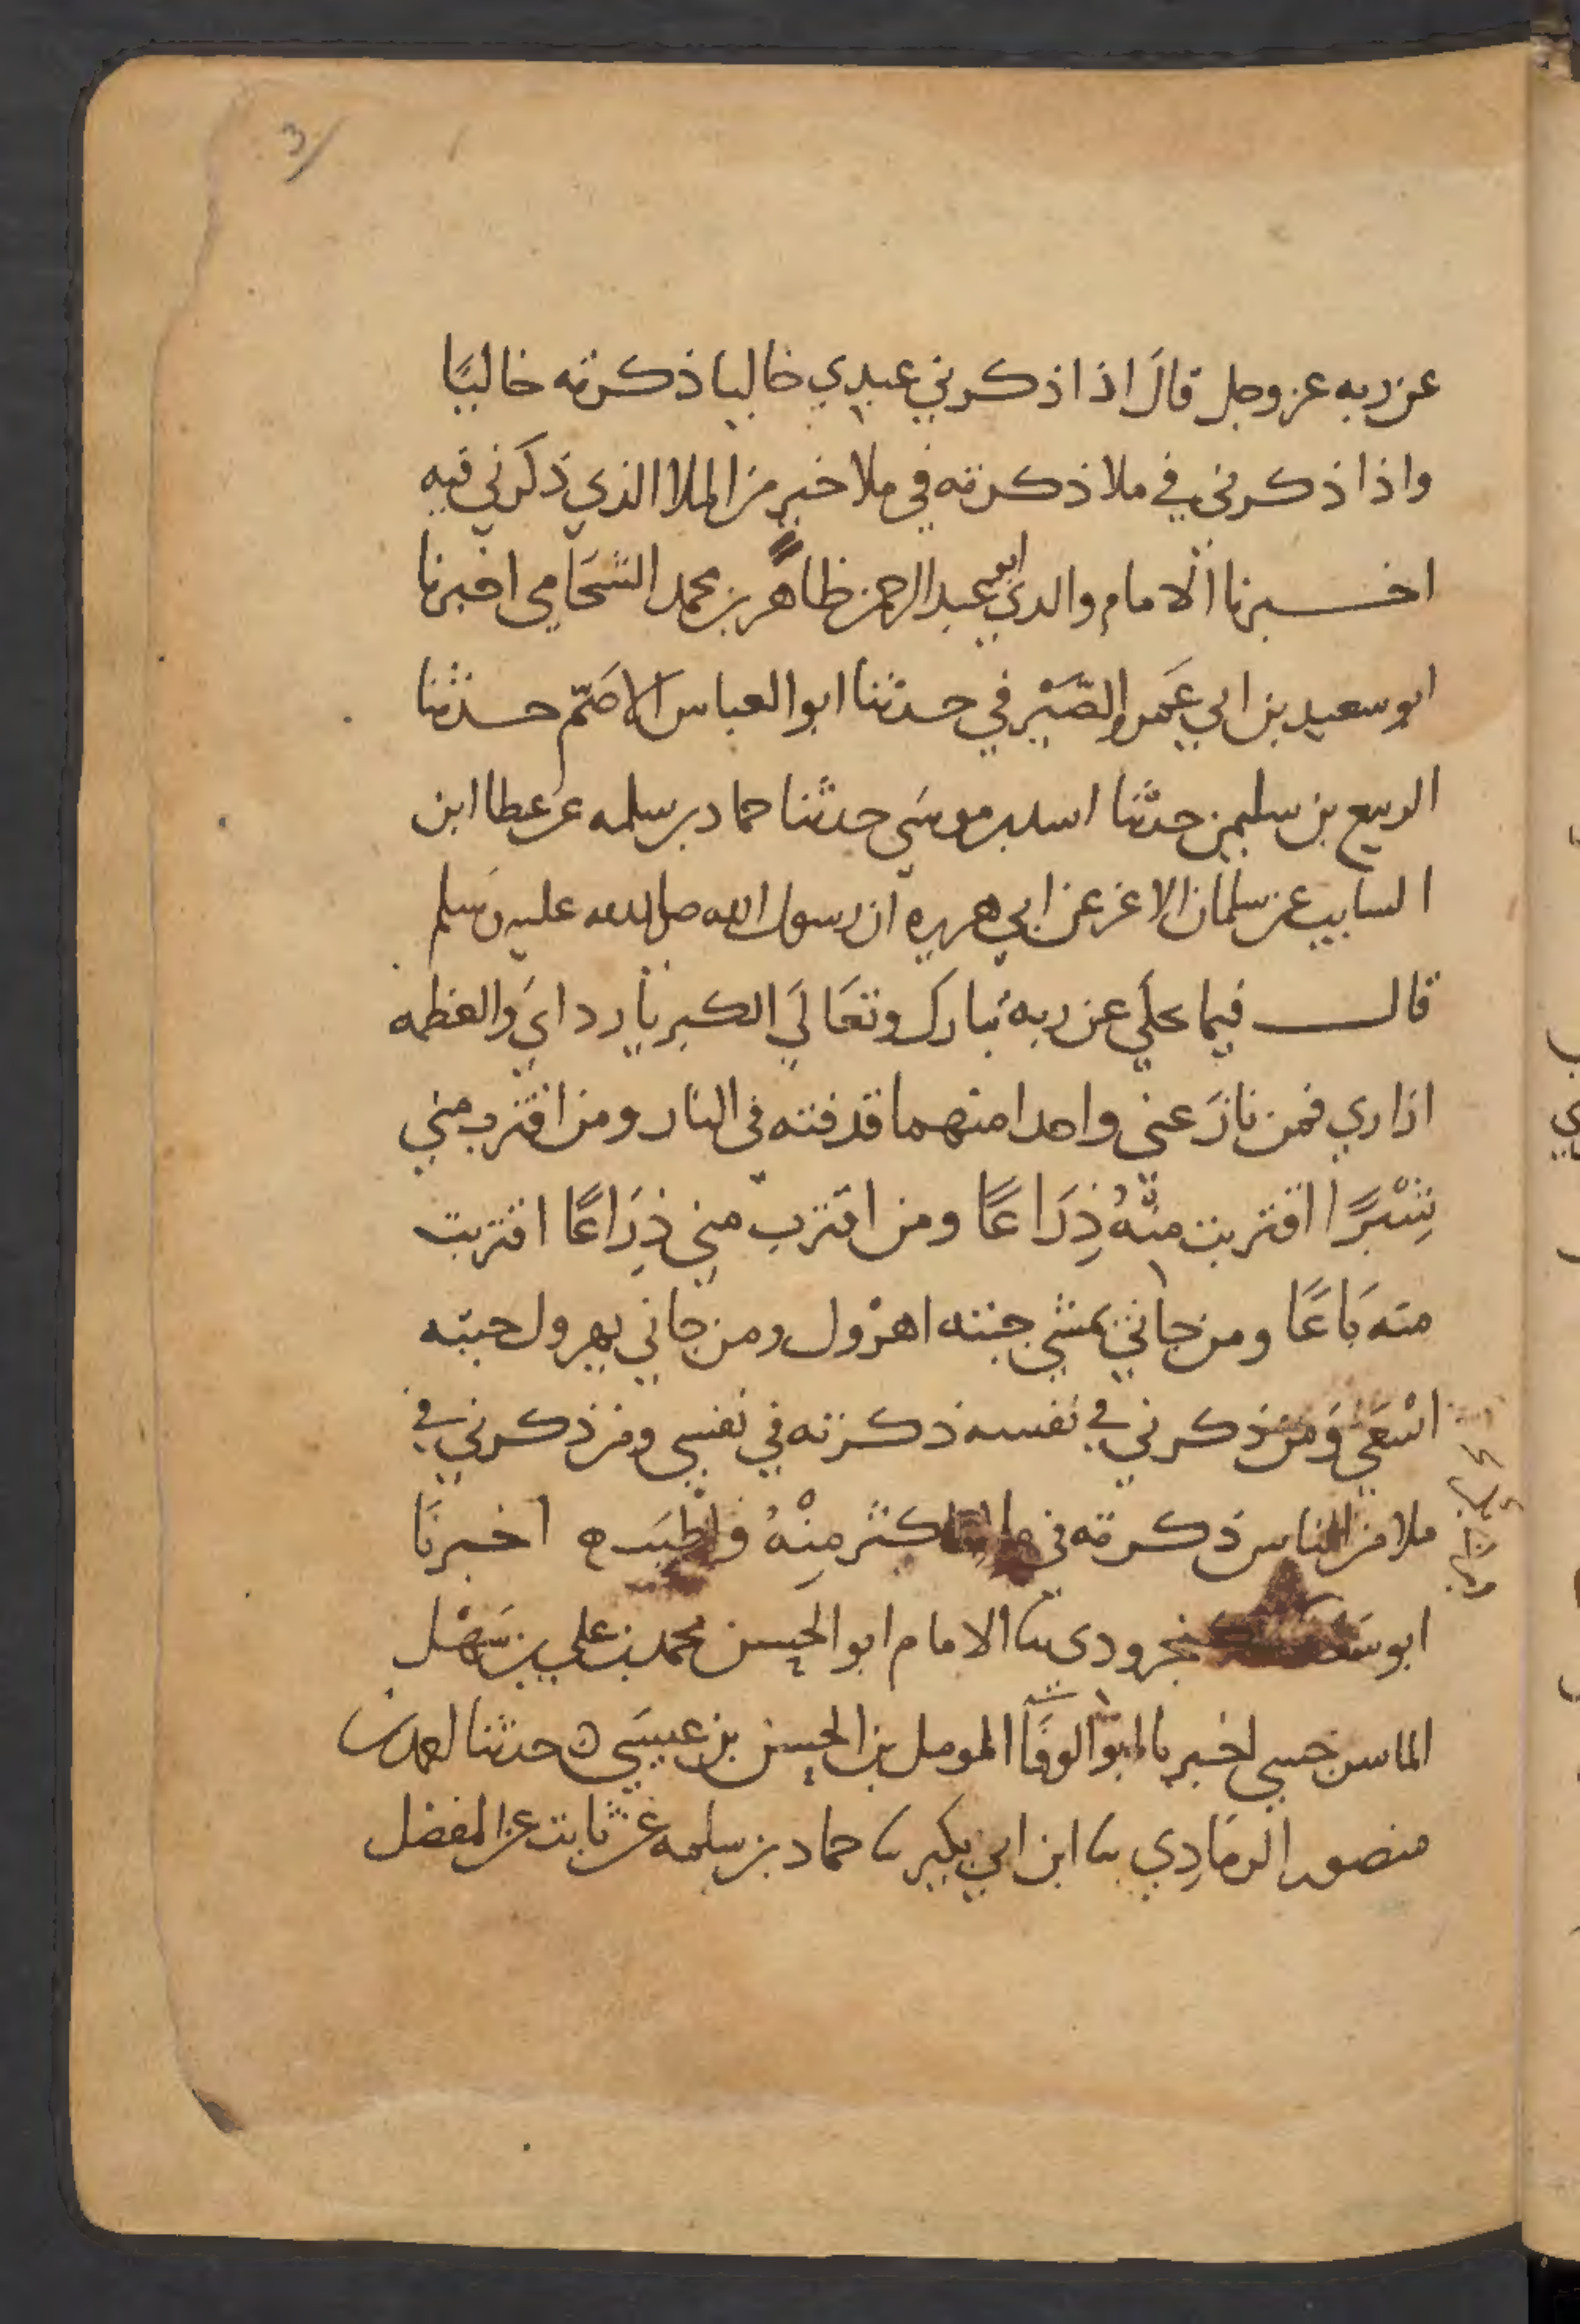 3
عن ربه عز وجل قالَ اذا ذكرني عبدي خاليا ذكرته خاليًا
واذا ذكرني في ملا ذكرته في ملا خير من الملا الذي ذكرني فيه
اخبرنا الامام والدي ابو عبد الرحمن طاهر بن محمد الشحَامي اخبرنا
ابو سعيد بن ابي عَمرو الصَّيْرفي حدثنا ابو العباس الاصَمّ حدثنا
الربيع بن سليمن حدثنا اسد بن موسَى حدثنا حماد بن سلمه عن عطا ابن
السايب عن سلمان الاغر عن ابي هريره ان رسول الله صلى الله عليه وَسلم
قال فيما يحكي عن ربه تبارك وتعَالَي الكبريا رداي وَالعظمه
ازاري فمن نازَعني واحدا منهما قذفته في النار ومن اقترب مني
شِبْرًا اقتربت منْهُ ذِرَاعًا ومن اقترب مني ذِرَاعًا اقتربت
منه بَاعًا ومن جاني يمشي جئته اهرْول ومن جاني يهرول جئته
اسْعَي وَمَن ذكرني في نفسه ذكرته في نفسي ومن ذكرني في
ملا من الناس ذكرته في ملا اكثر منِْهُ واطْيَب ه اخبرنَا
ابو سَعد الكنجرودي نا الامام ابو الحسن محمد بن علي بن سَهْل
الماسرجسي اخبرنا ابو الوفَا المومل بن الحسن بن عيسَي ه حدثنا احمد بن
منصور الرمَادِي نا ابن ابي بكير نا حماد بن سلمه عن ثابت عن المفضل